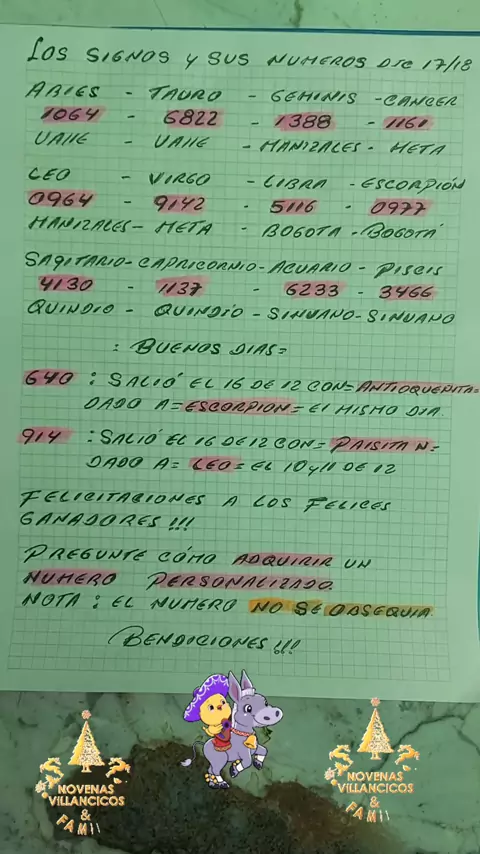 LOS SIGNOS Y SUS NUMEROS DIC 17/18
ARIES - TAURO - GEMINIS - CANCER
1064 - 6822 - 1388 - 1161
VAllE - VAllE - MANIZALES - META
LEO - VIRGO - LIBRA - ESCORPIÓN
0964 - 9142 - 5116 - 0977
MANIZALES - META - BOGOTA - BOGOTÁ
SAGITARIO - CAPRICORNIO - ACUARIO - PISCIS
4130 - 1137 - 6233 - 3466
QUINDIO - QUINDIO - SINUANO - SINUANO
: BUENOS DIAS =
640 : SALIÓ EL 16 DE 12 CON = ANTIOQUEÑITA =
DADO A = ESCORPION = El MISMO DIA.
914 : SALIÓ EL 16 DE 12 CON = PAISITA N =
DADO A = LEO = EL 10 y 11 DE 12
FELICITACIONES A LOS FELICES
GANADORES !!!
PREGUNTE CÓMO ADQUIRIR UN
NUMERO PERSONALIZADO.
NOTA : EL NUMERO NO SE OBSEQUIA.
BENDICIONES !!!
NOVENAS
VILLANCICOS
&
FAMI
NOVENAS
VILLANCICOS
&
FAMI